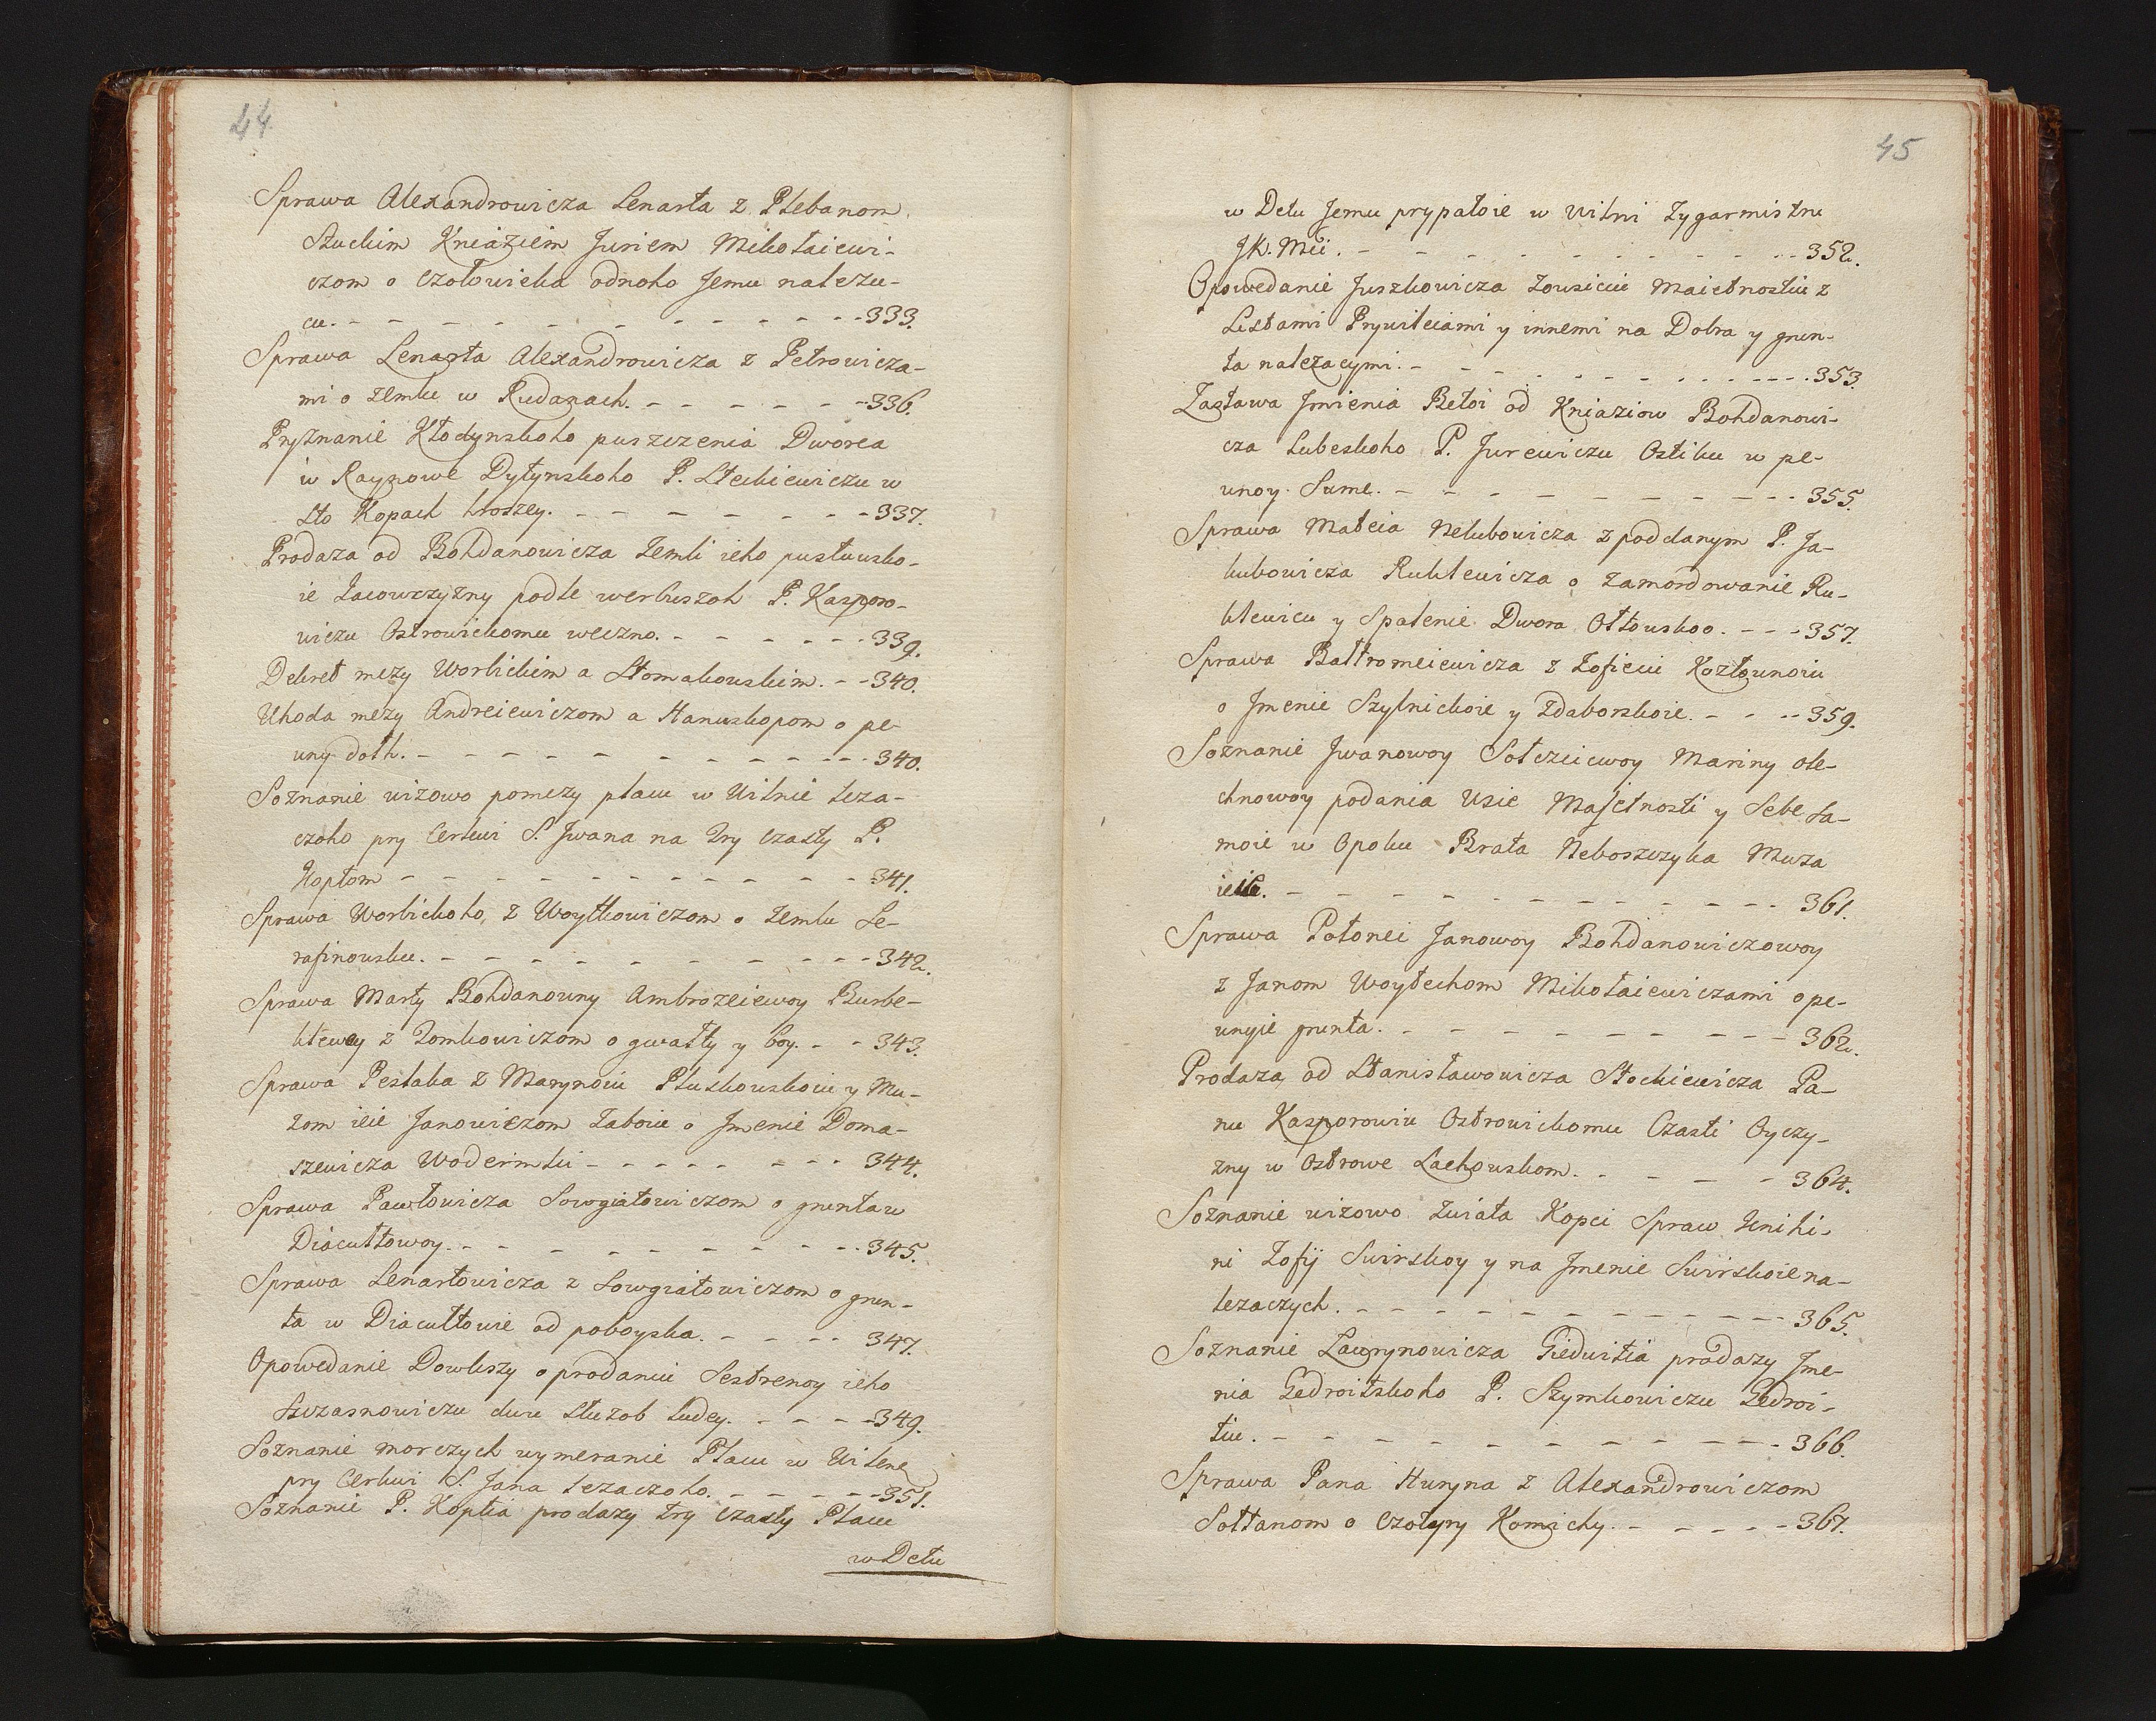 44
Sprawa Alexandrowicza Lenarta z Plebanom
Słuckim Kniaziem Juriem Mikołaiewi-
czom o człowieka odnoho Jemu należu-
cu. - - - - - - - - - - 333.
Sprawa Lenarta Alexandrowicza z Petrowicza-
mi o zemlu w Rudazach. - - - - - - 336.
Pryznanie Kłodynskoho puszczenia Dworca
w Raynowe Dytynskoho P. Steckiewiczu w
sto Kopach hroszey. - - - - - - - 337.
Prodaza od Bohdanowicza Zemli ieho pustowsko-
ie Iacowczyzny podle werbuszok P. Kasporo-
wiczu Ostrowickomu weczno. - - - - - - 339.
Dekret mezy Worlickim a Stomakouskim. - - 340.
Uhoda mezy Andreiewiczom a Hanuskopom o pe-
uny dolh. - - - - - - - - - - 340.
Soznanie wizowo pomezy placu w Uilnie leza-
czoho pry Cerkwi S. Jwana na Try Czasty P.
Koptom - - - - - - - - - - 341.
Sprawa Worlickoho z Woytkowiczom o zemlu Se-
rafinousku. - - - - - - - - - 342.
Sprawa Marty Bohdanowny Ambrozeiewoy Burbe-
klewey z Tomkowiczom o gwałty y boy. - - 343.
Sprawa Peslaka z Marynoiu Pluskouskoiu y Mu-
zom ieie Janowiczom Zaboiu o Jmenie Doma-
szewicza Woderinski - - - - - - - 344.
Sprawa Pawłowicza Sowgiałowiczom o grunta w
Diacułtowoy. - - - - - - - - - 345.
Sprawa Lenartowicza z Sowgiałowiczom o grun-
ta w Diacułtowie od poboyska. - - - - 347.
Opowedanie Dowkszy o prodaniu Sestrenoy ieho
Szczasnowiczu dwu Służob Ludey. - - - - 349.
Soznanie morczych wymeranie Placu w Uilene
pry Cerkwi S. Jana lezaczoho. - - - - - 351.
Soznanie P. Koptia prodazy try Czasty Placu
w Detu
45
w Detu Jemu prypałoie w Uilni Zygarmistru
JK. Mci. - - - - - - - - - 352.
Opowedanie Juszkowicza Zousiciu Maietnostiu z
Listami Prywileiami y innemi na Dobra y grun-
ta nalezacymi. - - - - - - - - - 353.
Zastawa Jmienia Betoi od Kniaziow Bohdanowi-
cza Lubeskoho P. Jurewiczu Ostiku w pe-
unoy Sume. - - - - - - - - - 355.
Sprawa Matcia Nelubowicza z poddanym P. Ja-
kubowicza Ruklewicza o zamordowanie Ru-
klewicu y Spalenie Dwora Ołtouskoo. - - - 357.
Sprawa Bałtromeiewicza z Zofieiu Kozłounoiu
o Jmenie Szylnickoie y Zdaborskoie. - - - - 359.
Soznanie Jwanowoy Sołczeiewoy Mariny Ole-
chnowoy podania Usie Majetnosti y Sebe sa-
moie w Opoku Brata Neboszczyka Muza
ieie. - - - - - - - - - - 361.
Sprawa Polonei Janowoy Bohdanowiczowoy
z Janom Woytechom Mikołaiewiczami o pe-
unyie grunta. - - - - - - - - - 362.
Prodaza od Stanisławowicza Stockiewicza Pa-
nu Kasporowiu Ostrowickomu Czasti Oyczy-
zny w Ostrowe Lachouskom. - - - - - 364.
Soznanie wizowo Zwiata Kopci Spraw Kniki-
ni Zofij Swirskoy y na Jmenie Swirskoie na-
lezaczych. - - - - - - - - - - 365.
Soznanie Ławrynowicza Giedwitia prodazy Jme-
nia Gedroitskoho P. Szymkowiczu Gedroi-
tiu. - - - - - - - - - - 366.
Sprawa Pana Huryna z Alexandrowiczom
Sołtanom o Czotyry Komiahy. - - - - - 367.